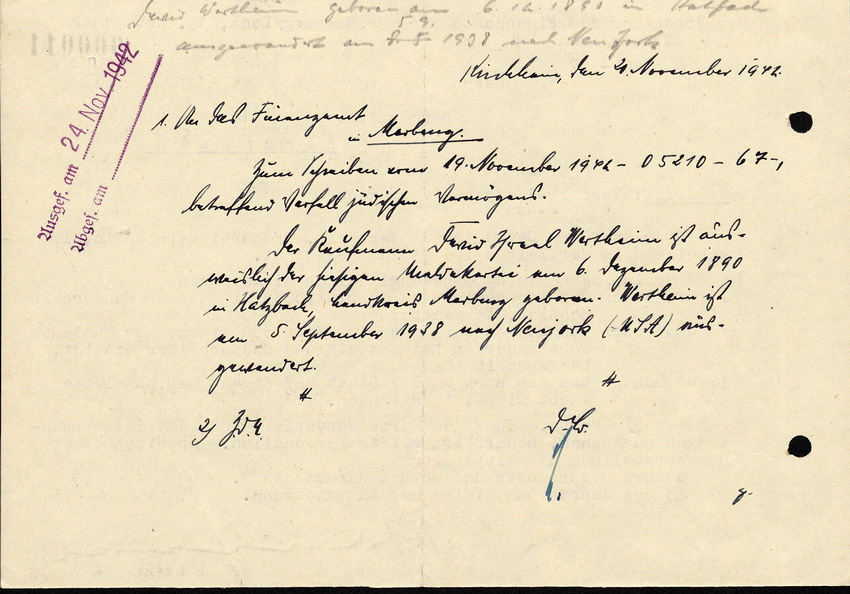 David Wertheim geboren am 6.12.1890 in Hatzbach
5.9.
ausgewandert am 1938 nach Neujork
Kirchhain, den 21. November 1942.
Ausgef. am 24. Nov. 1942
Abges. am
1. An das Finanzamt
in Marburg.
Zum Schreiben vom 19. November 1942 - O 5210 - 67 -,
betreffend Verfall jüdischen Vermögens.
Der Kaufmann David Israel Wertheim ist aus-
weislich der hiesigen Meldekartei am 6. Dezember 1890
in Hatzbach, Landkreis Marburg geboren. Wertheim ist
am 5. September 1938 nach Neujork (USA) aus-
gewandert.
2) Z.d.A.
D. B.